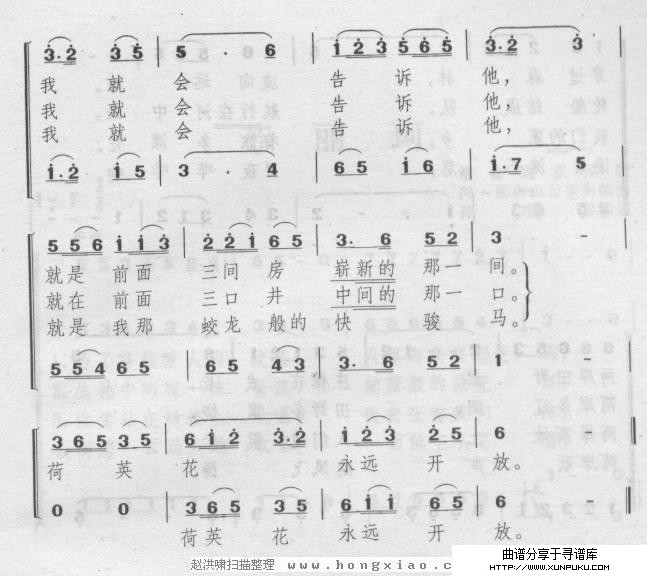 3·2 3 5 5 · 6 1 2 3 5 6 5 3·2 3
我 就 会 告 诉 他，
我 就 会 告 诉 他，
我 就 会 告 诉 他，
1·2 1 5 3 · 4 6 5 1 6 1·7 5
5 5 6 1 1 3 2 2 1 6 5 3· 6 5 2 3 -
就是 前面 三间 房 崭新的 那一 间。
就在 前面 三口 井 中间的 那一 口。
就是 我那 蛟龙 般的 快 骏 马。
5 5 4 6 5 6 5 4 3 3· 6 5 2 1 -
3 6 5 3 5 6 1 2 3·2 1 2 3 2 5 6 - -
荷 英 花 永远 开 放。
0 0 3 6 5 3 5 6 1 1 6 5 6 - -
荷英 花 永远 开 放。
赵洪啸扫描整理 www.hongxiao.c
曲谱分享于寻谱库
HTTP://WWW.XUNPUKU.COM